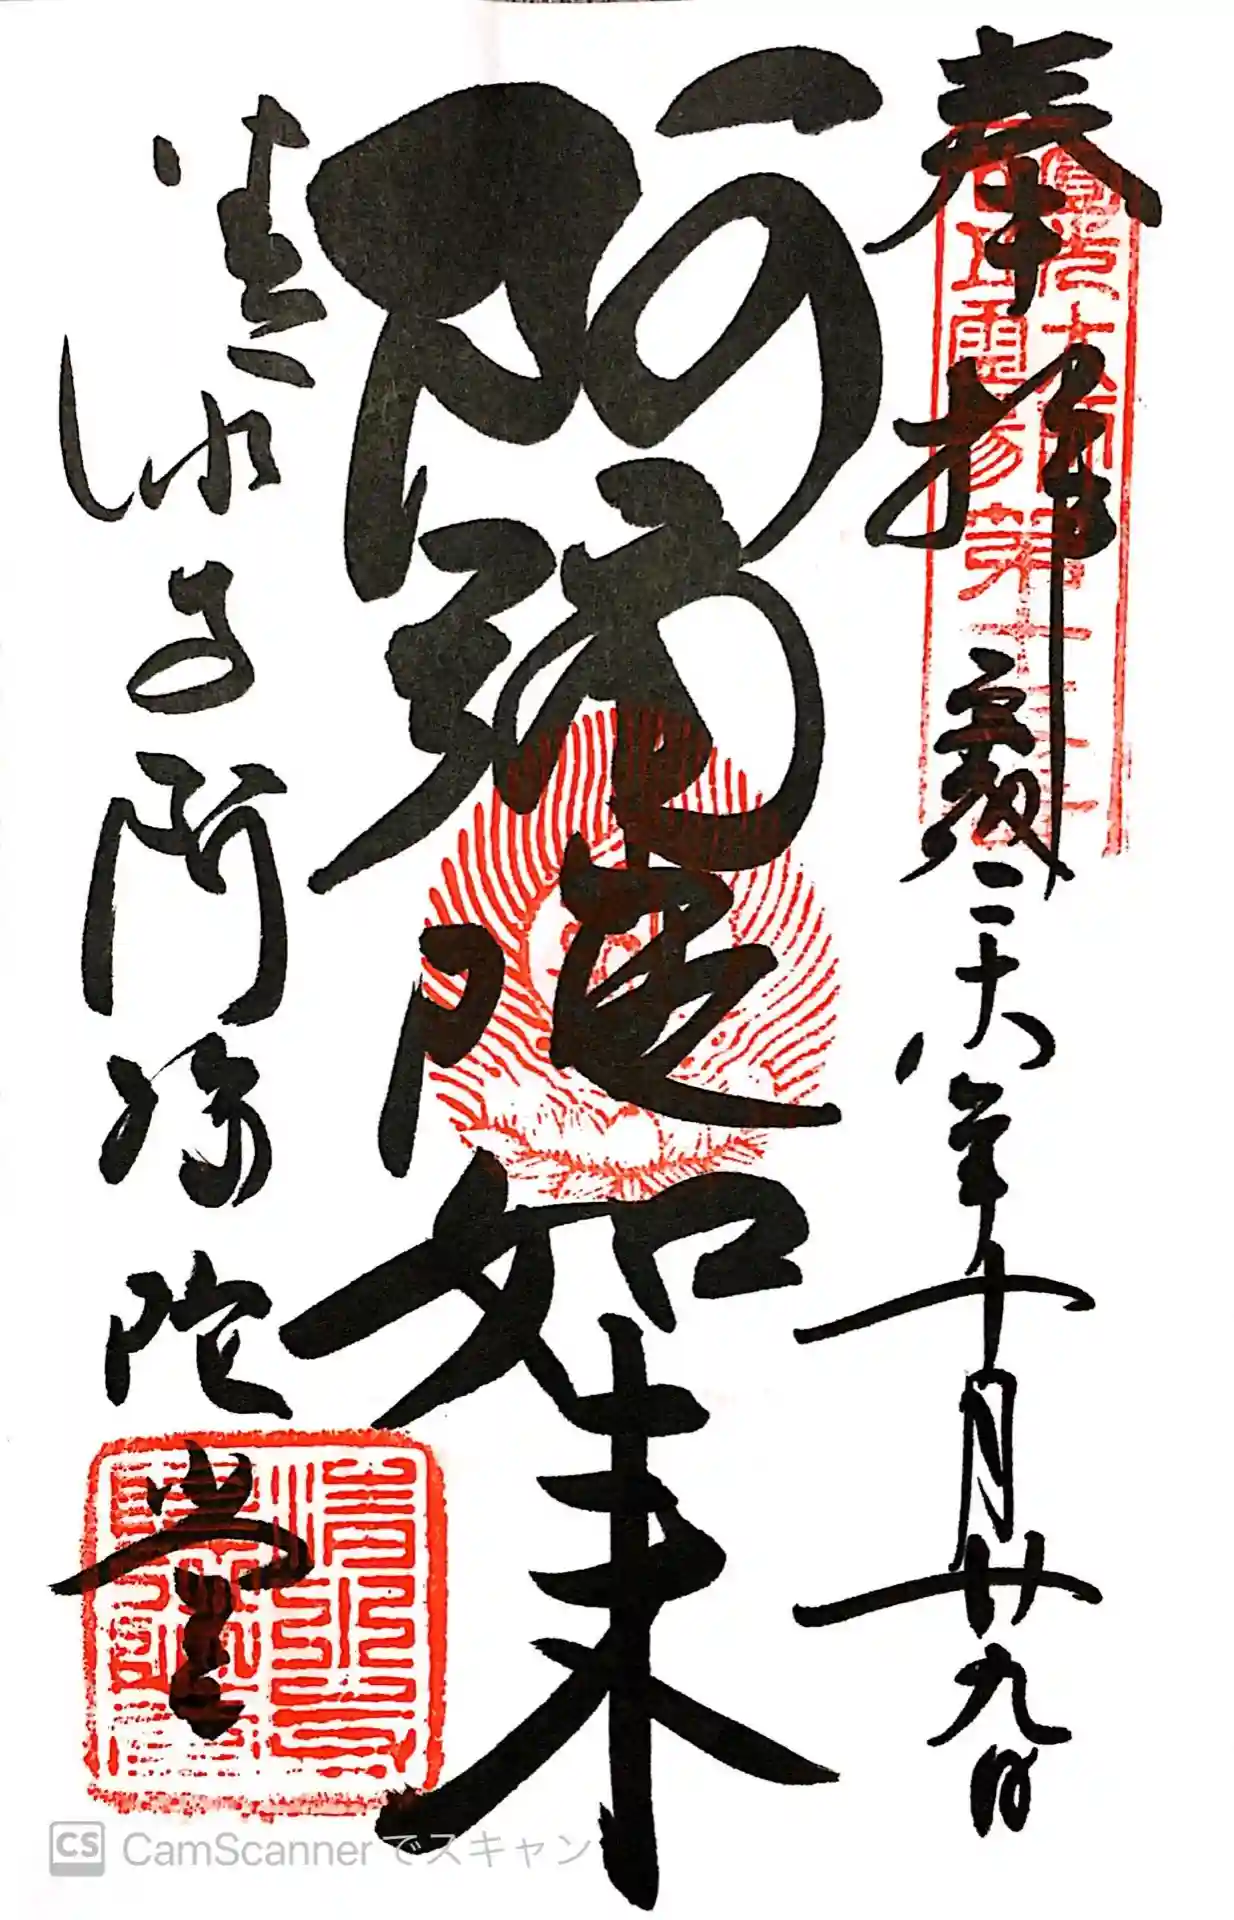 奉拝
平成二十八年十月廿九日
圓光大師
第十三
阿弥陀如来
清水寺阿弥陀堂
清水寺
CS CamScannerでスキャン